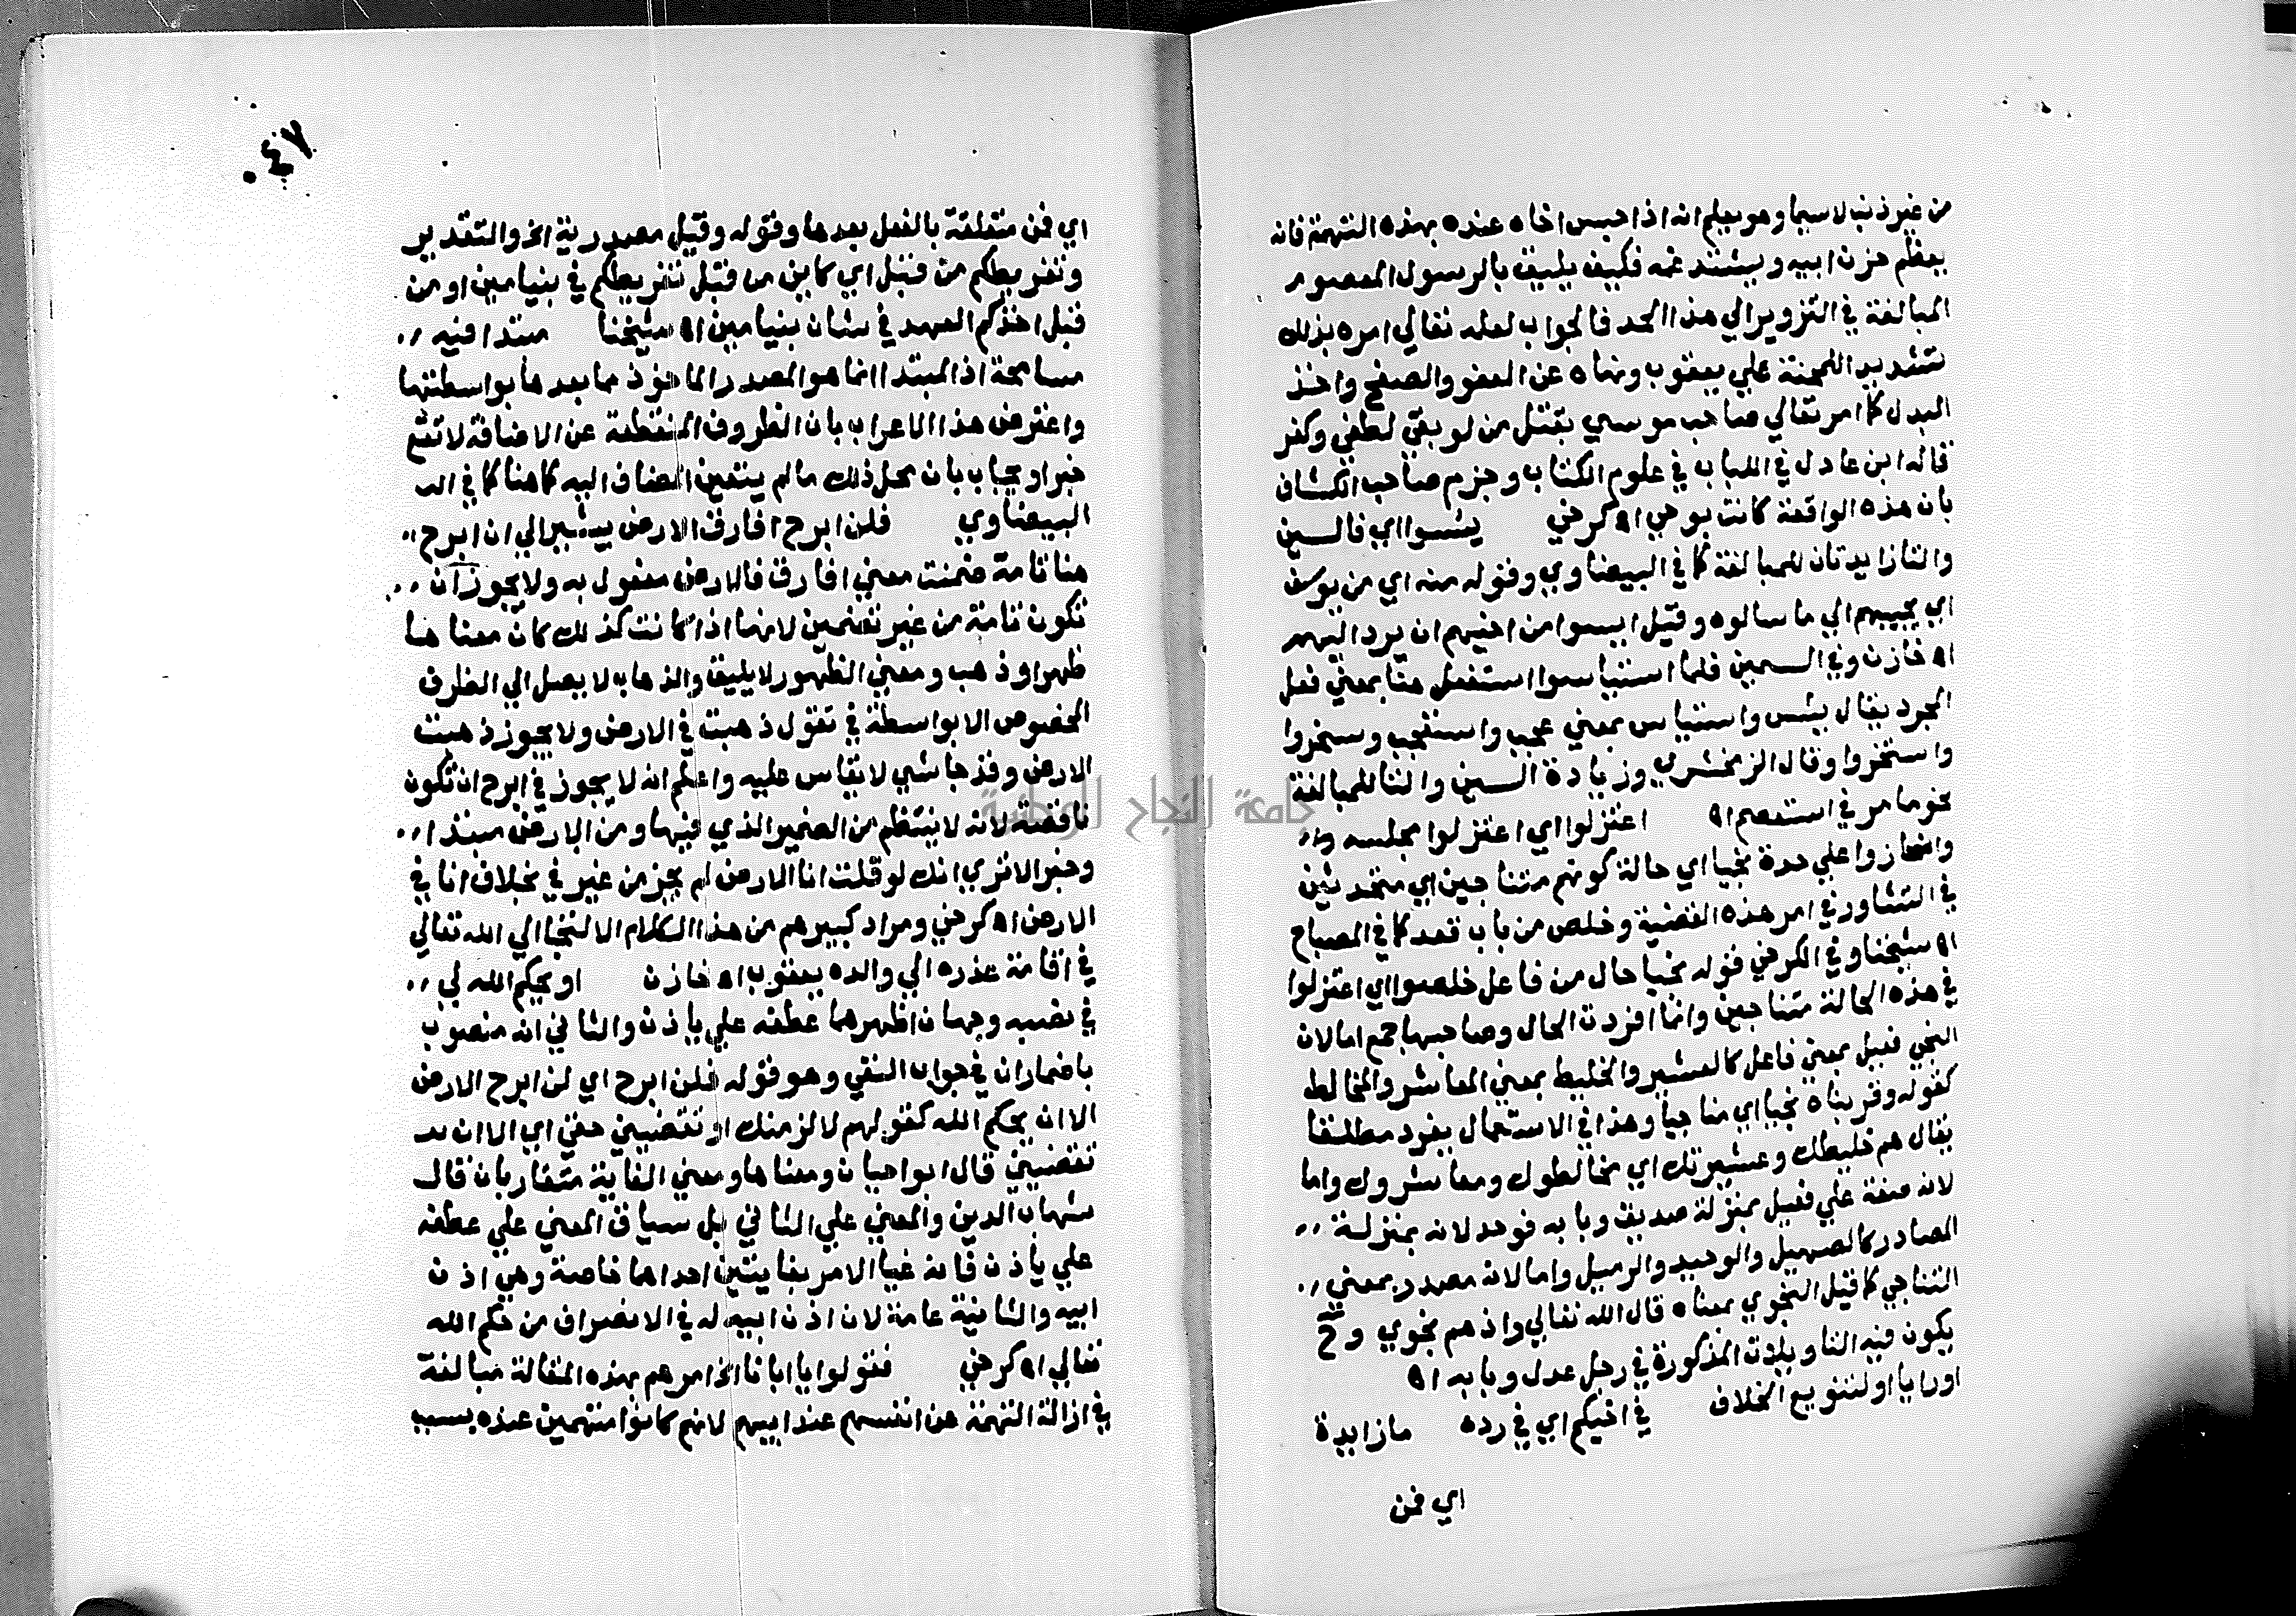 من غير ذنب لاسيما وهو يعلم انه اذا حبس اخاه عنده بهذه التهمة فانه
يعظم حزن ابيه ويشتد غمه فكيف يليق بالرسول المعصوم
المبالغة في التزوير الي هذا الحد فالجواب لعله تعالي امره بذلك
تشديد اللمحنة علي يعقوب ونهاه عن العفو والصفح واخذ
البدل كما امر تعالي صاحب موسي بقتل من لو بقي لطغي وكفر
قاله ابن عادل في اللباب في علوم الكتاب وجزم صاحب الكشاف
بان هذه الواقعة كانت بوحي اه كرخي يئسوا اي فالسين
والتا زايدتان للمبالغة كما في البيضاوي وقوله منه اي من يوسف
اي يجيبهم الي ما سالوه وقيل ايسوا من اخيهم ان يرد اليهم
اه خازن وفي السمين فلما استياسوا استفعل هنا بمعني فعل
المجرد يقال يئس واستياس بمعني عجب واستعجب وسخروا
واستسخروا وقال الزمخشري وزيادة السين والتا للمبالغة
نحو ما مر في استعصم اه اعتزلوا اي اعتزلوا مجلسه
وانحازوا علي حدة نجيا اي حالة كونهم متناجين اي متحدثين
في التشاور في امر هذه القضية وخلص من باب قعد كما في المصباح
اه شيخنا وفي الكرخي قوله نجيا حال من فاعل خلصوا اي اعتزلوا
في هذه الحالة متناجين وانما افردت الحال وصاحبها جمع اما لان
النجي فعيل بمعني فاعل كالعشير والخليط بمعني المعاشر والمخالط
كقوله وقربناه نجيا اي مناجيا وهذا في الاستعمال يفرد مطلقا
يقال هم خليطك وعشيرتك اي مخالطوك ومعاشروك واما
لانه صفة علي فعيل بمنزلة صديق وبابه فوحد لانه بمنزلة
المصادر كالصهيل والوحيد والرميل واما لانه مصدر بمعني
التناجي كما قيل النجوي بمعناه قال الله تعالي واذ هم نجوي وح
يكون فيه التاويلات المذكورة في رجل عدل وبابه اه
او رايا او لتنويع الخلاف في اخيكم اي في رده ما زايدة
اي فمن
٠٤٧
اي فمن متعلقة بالفعل بعدها وقوله وقيل مصدرية الخ والتقدير
وتفريطكم من قبل اي كاين من قبل تفريطكم في بنيامين او من
قبل اخذكم العهد في شان بنيامين اه شيخنا مبتدا فيه
مسامحة اذ المبتدا انما هو المصدر الماخوذ مما بعدها بواسطتها
واعترض هذا الاعراب بان الظروف المنقطعة عن الاضافة لا تقع
خبرا ويجاب بان محل ذلك ما لم يتعين المضاف اليه كما هنا كما في الب
البيضاوي فلن ابرح افارق الارض يشير الي ان ابرح
هنا تامة ضمنت معني افارق فالارض مفعول به ولا يجوز ان
تكون تامة من غير تضمين لانها اذا كانت كذلك كان معناها
ظهر او ذهب ومعني الظهور لا يليق والذهاب لا يصل الي الظرف
المخصوص الا بواسطة في تقول ذهبت في الارض ولا يجوز ذهبت
الارض وقد جا شي لا يقاس عليه واعلم انه لا يجوز في ابرح ان تكون
ناقصة لانه لا ينتظم من الضمير الذي فيها ومن الارض مبتدا
وخبر الا تري انك لو قلت انا الارض لم يجز من غير في بخلاف انا في
الارض اه كرخي ومراد كبيرهم من هذا الكلام الالتجا الي الله تعالي
في اقامة عذره الي والده يعقوب اه خازن او يحكم الله لي
في نصبه وجهان اظهرهما عطفه علي ياذن والثاني انه منصوب
باضمار ان في جواب النفي وهو قوله فلن ابرح اي لن ابرح الارض
الا ان يحكم الله كقولهم لالزمنك او تقضيني حقي اي الا ان
تقضيني قال ابو احيان ومعناها ومعني الغاية متقاربان قال
شهاب الدين والمعني علي الثاني بل سياق المعني علي عطفه
علي ياذن فانه غيا الامر بغايتين احداهما خاصة وهي اذن
ابيه والثانية عامة لان اذن ابيه له في الانصراف من حكم الله
تعالي اه كرخي فقولوا يا ابانا الخ امرهم بهذه المقالة مبالغة
في ازالة التهمة عن انفسهم عند ابيهم لانهم كانوا متهمين عنده بسبب
جامعة النجاح الوطنية